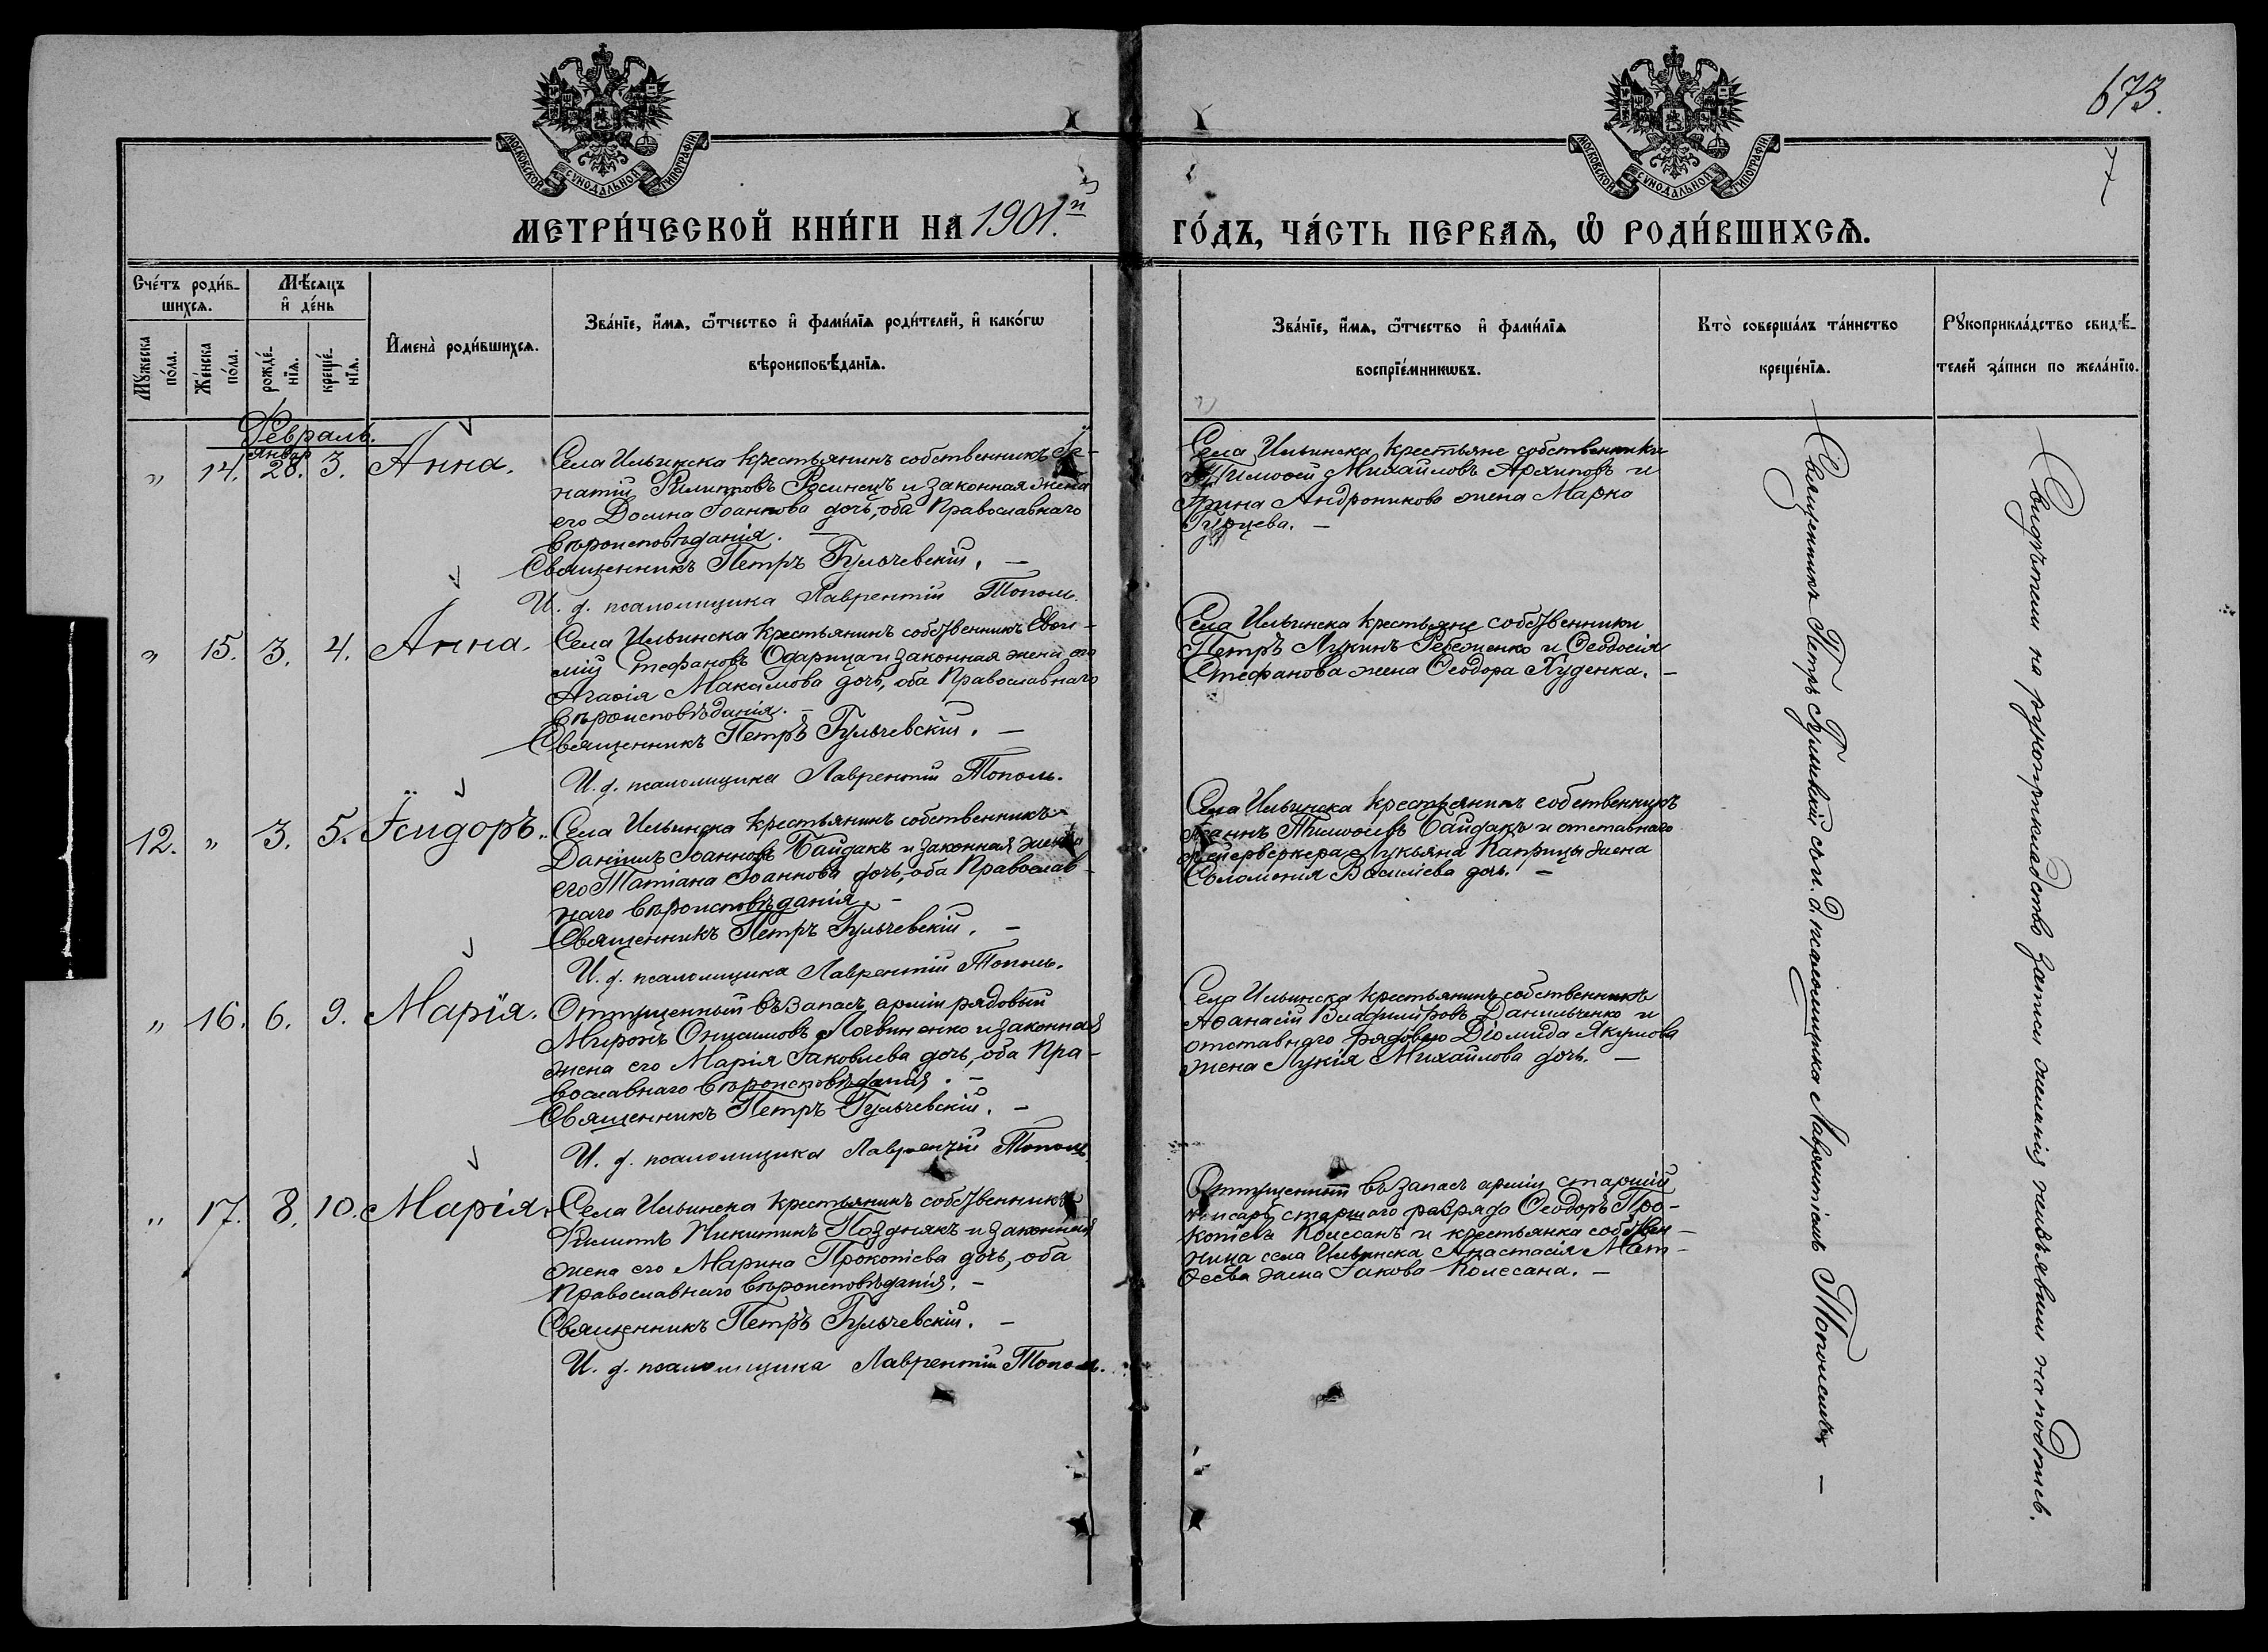 673.
МОСКОВСКОЙ СУНОДАЛЬНОЙ ТИПОГРАФІИ
МОСКОВСКОЙ СУНОДАЛЬНОЙ ТИПОГРАФІИ
МЕТРИ́ЧЕСКОЙ КНИ́ГИ НА 1901.й
ГО́ДЪ, ЧА́СТЬ ПЕРВАѦ, Ѡ РОДИ́ВШИХСѦ.
Сче́тъ роди́в-
шихсѧ.
Мѣ́сѧцъ
и҆ де́нь
Мꙋ́жеска
по́ла.
Же́нска
по́ла.
рожде́-
нїѧ.
креще́-
нїѧ.
И҆мена̀ роди́вшихсѧ.
Зва́нїе, и҆́мѧ, ѻ҆́тчество и҆ фами́лїѧ роди́телей, и҆ како́гѡ
вѣроисповѣ́данїѧ.
Зва́нїе, и҆́мѧ, ѻ҆́тчество и҆ фами́лїѧ
воспрїе́мникѡвъ.
Кто̀ соверша́лъ та́инство
креще́нїѧ.
Рꙋкоприкла́дство свидѣ́-
телей за́писи по жела́нїю.
Февраль.
Январ
" 14. 28. 3. Анна.
Села Ильинска крестьянинъ собственникъ Иг-
натій Филипповъ Росинецъ и законная жена
его Домна Іоаннова дочь, оба Православнаго
вѣроисповѣданія. –
Священникъ Петръ Гульчевскій. –
И. д. псаломщика Лаврентій Тополь.
Села Ильинска крестьяне собственники
Тимоѳей Михайловъ Архиповъ и
Ирина Андроникова жена Марка
Гурцева. –
" 15. 3. 4. Анна.
Села Ильинска крестьянинъ собственникъ Евѳи-
мій Стефановъ Одарица и законная жена его
Агаѳія Максимова дочь, оба Православнаго
вѣроисповѣданія. –
Священникъ Петръ Гульчевскій. –
И. д. псаломщика Лаврентій Тополь.
Села Ильинска крестьяне собственники
Петръ Лукинъ Ребеженко и Ѳеодосія
Стефанова жена Ѳеодора Худенка. –
12. " 3. 5. Ісидоръ.
Села Ильинска крестьянинъ собственникъ
Даніилъ Іоанновъ Байдакъ и законная жена
его Татіана Іоаннова дочь, оба Православ-
наго вѣроисповѣданія. –
Священникъ Петръ Гульчевскій. –
И. д. псаломщика Лаврентій Тополь.
Села Ильинска крестьянинъ собственникъ
Іоаннъ Тимоѳеевъ Байдакъ и отставнаго
фейерверкера Лукьяна Каприцы жена
Соломонія Василіева дочь. –
" 16. 6. 9. Марія.
Отпущенный въ запасъ арміи рядовый
Миронъ Онисимовъ Логвиненко и законная
жена его Марія Іаковлева дочь, оба Пра-
вославнаго вѣроисповѣданія. –
Священникъ Петръ Гульчевскій. –
И. д. псаломщика Лаврентій Тополь.
Села Ильинска крестьянинъ собственникъ
Аѳанасій Владиміровъ Данильченко и
отставнаго рядоваго Діомида Якумова
жена Лукія Михайлова дочь. –
" 17. 8. 10. Марія.
Села Ильинска крестьянинъ собственникъ
Филиппъ Никитинъ Позднякъ и законная
жена его Марина Прокопіева дочь, оба
Православнаго вѣроисповѣданія. –
Священникъ Петръ Гульчевскій. –
И. д. псаломщика Лаврентій Тополь.
Отпущенный въ запасъ арміи старшій
писарь старшаго разряда Ѳеодоръ Про-
копіевъ Колесанъ и крестьянка собствен-
ница села Ильинска Анастасія Мат-
ѳеева жена Іакова Колесана. –
Священникъ Петръ Гульчевскій съ и. д. псаломщика Лаврентіемъ Тополемъ –
Свидѣтели на рукоприкладство записи желанія неизъявили на подпись.